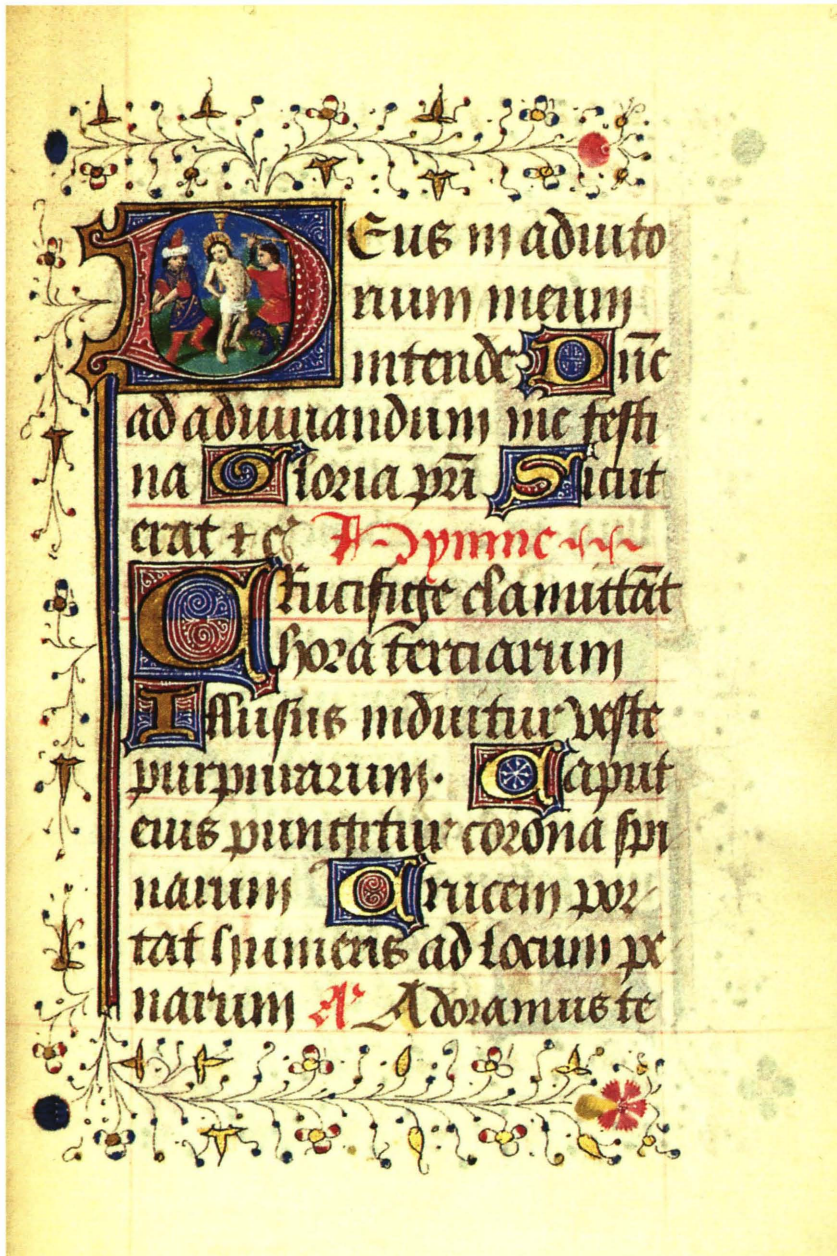 DEus in adiuto
rium meum
intende Dn̄e
ad adiuuandum me festi
na Gloria pr̄i Sicut
erat + c̄ Hymne
CRucifige clamittāt
hora terciarum
Illusus induitur veste
purpurarum· Caput
eius pungitur corona spi
narum Crucem por
tat humeris ad locum pe
narum A' Adoramus te